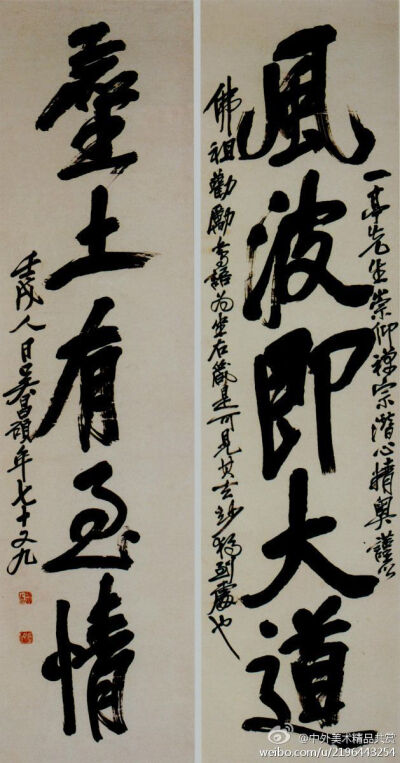 風波即大道
一亭先生崇仰禪宗潛心精奧謹以
佛祖勸勵語為坐右箴是可見其玄妙獨到處也
塵土有至情
壬戌人日吳昌碩年七十又九
@中外美术精品共赏
weibo.com/u/2196443254